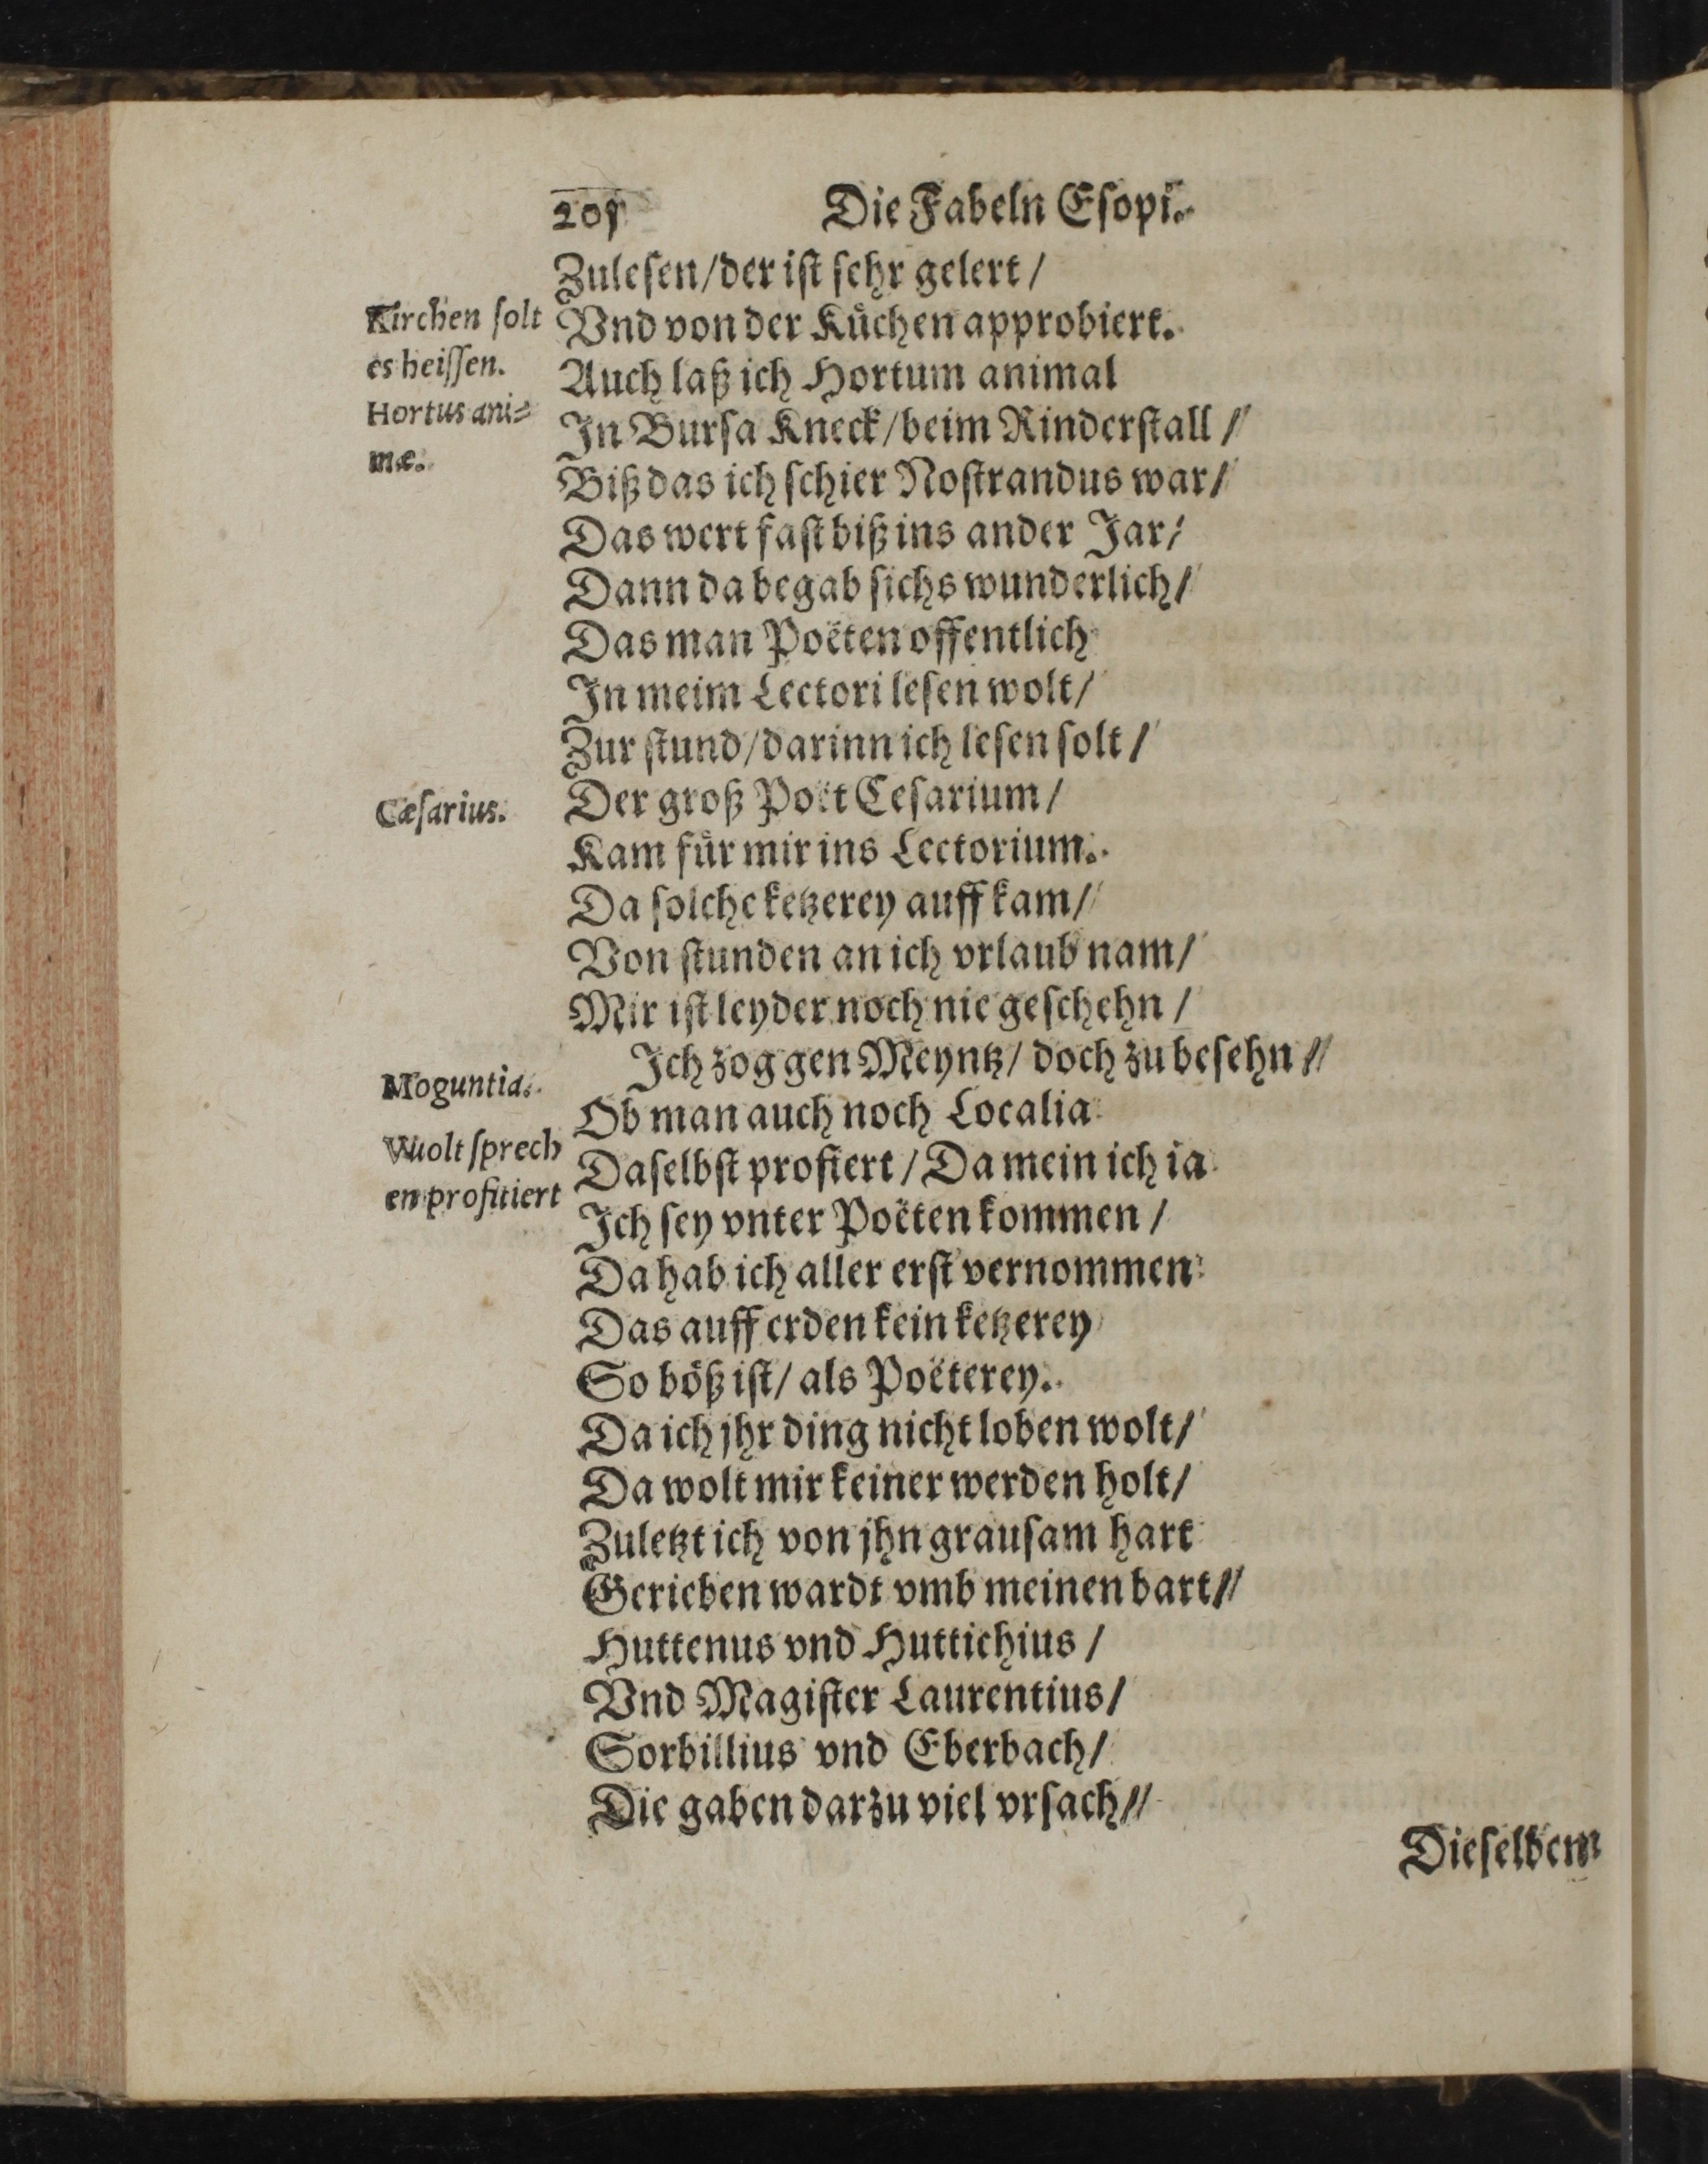 Die Fabeln Esopi.
Zulesen/der ist sehr gelert/
Kirchen solt
es heissen.
Vnd von der Küchen approbiert.
Auch laß ich Hortum animal
Hortus ani=
mæ.
In Bursa Kneck/beim Rinderstall/
Biß das ich schier Nostrandus war/
Das wert fast biß ins ander Jar/
Dann da begab sichs wunderlich/
Das man Poëten offentlich
In meim Lectori lesen wolt/
Zur stund/darinn ich lesen solt/
Cæsarius.
Der groß Poët Cesarium/
Kam für mir ins Lectorium.
Da solche ketzerey auff kam/
Von stunden an ich vrlaub nam/
Mir ist leyder noch nie geschehn/
Ich zog gen Meyntz/ doch zu besehn/
Moguntia.
Ob man auch noch Localia
Wolt sprech
en profitiert
Daselbst profiert/Da mein ich ia
Ich sey vnter Poëten kommen/
Da hab ich aller erst vernommen
Das auff erden kein ketzerey
So böß ist/ als Poëterey.
Da ich jhr ding nicht loben wolt/
Da wolt mir keiner werden holt/
Zuletzt ich von jhn grausam hart
Gerieben wardt vmb meinen bart/
Huttenus vnd Huttichius/
Vnd Magister Laurentius/
Sorbillius vnd Eberbach/
Die gaben darzu viel vrsach/
Dieselben